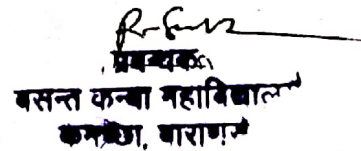 प्रबन्धक
वसन्त कन्या महाविद्यालय
कमच्छा, वाराणसी